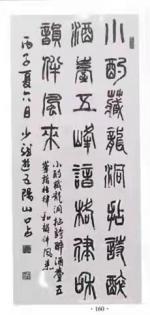 小酌藏龍洞拈詩醉
酒臺五峰諧格律和
韻伴風來
小酌藏龍洞拈詩醉酒臺五
峯諧格律和韻伴風来
丙子夏六日少遊五陽山口占
· 160 ·